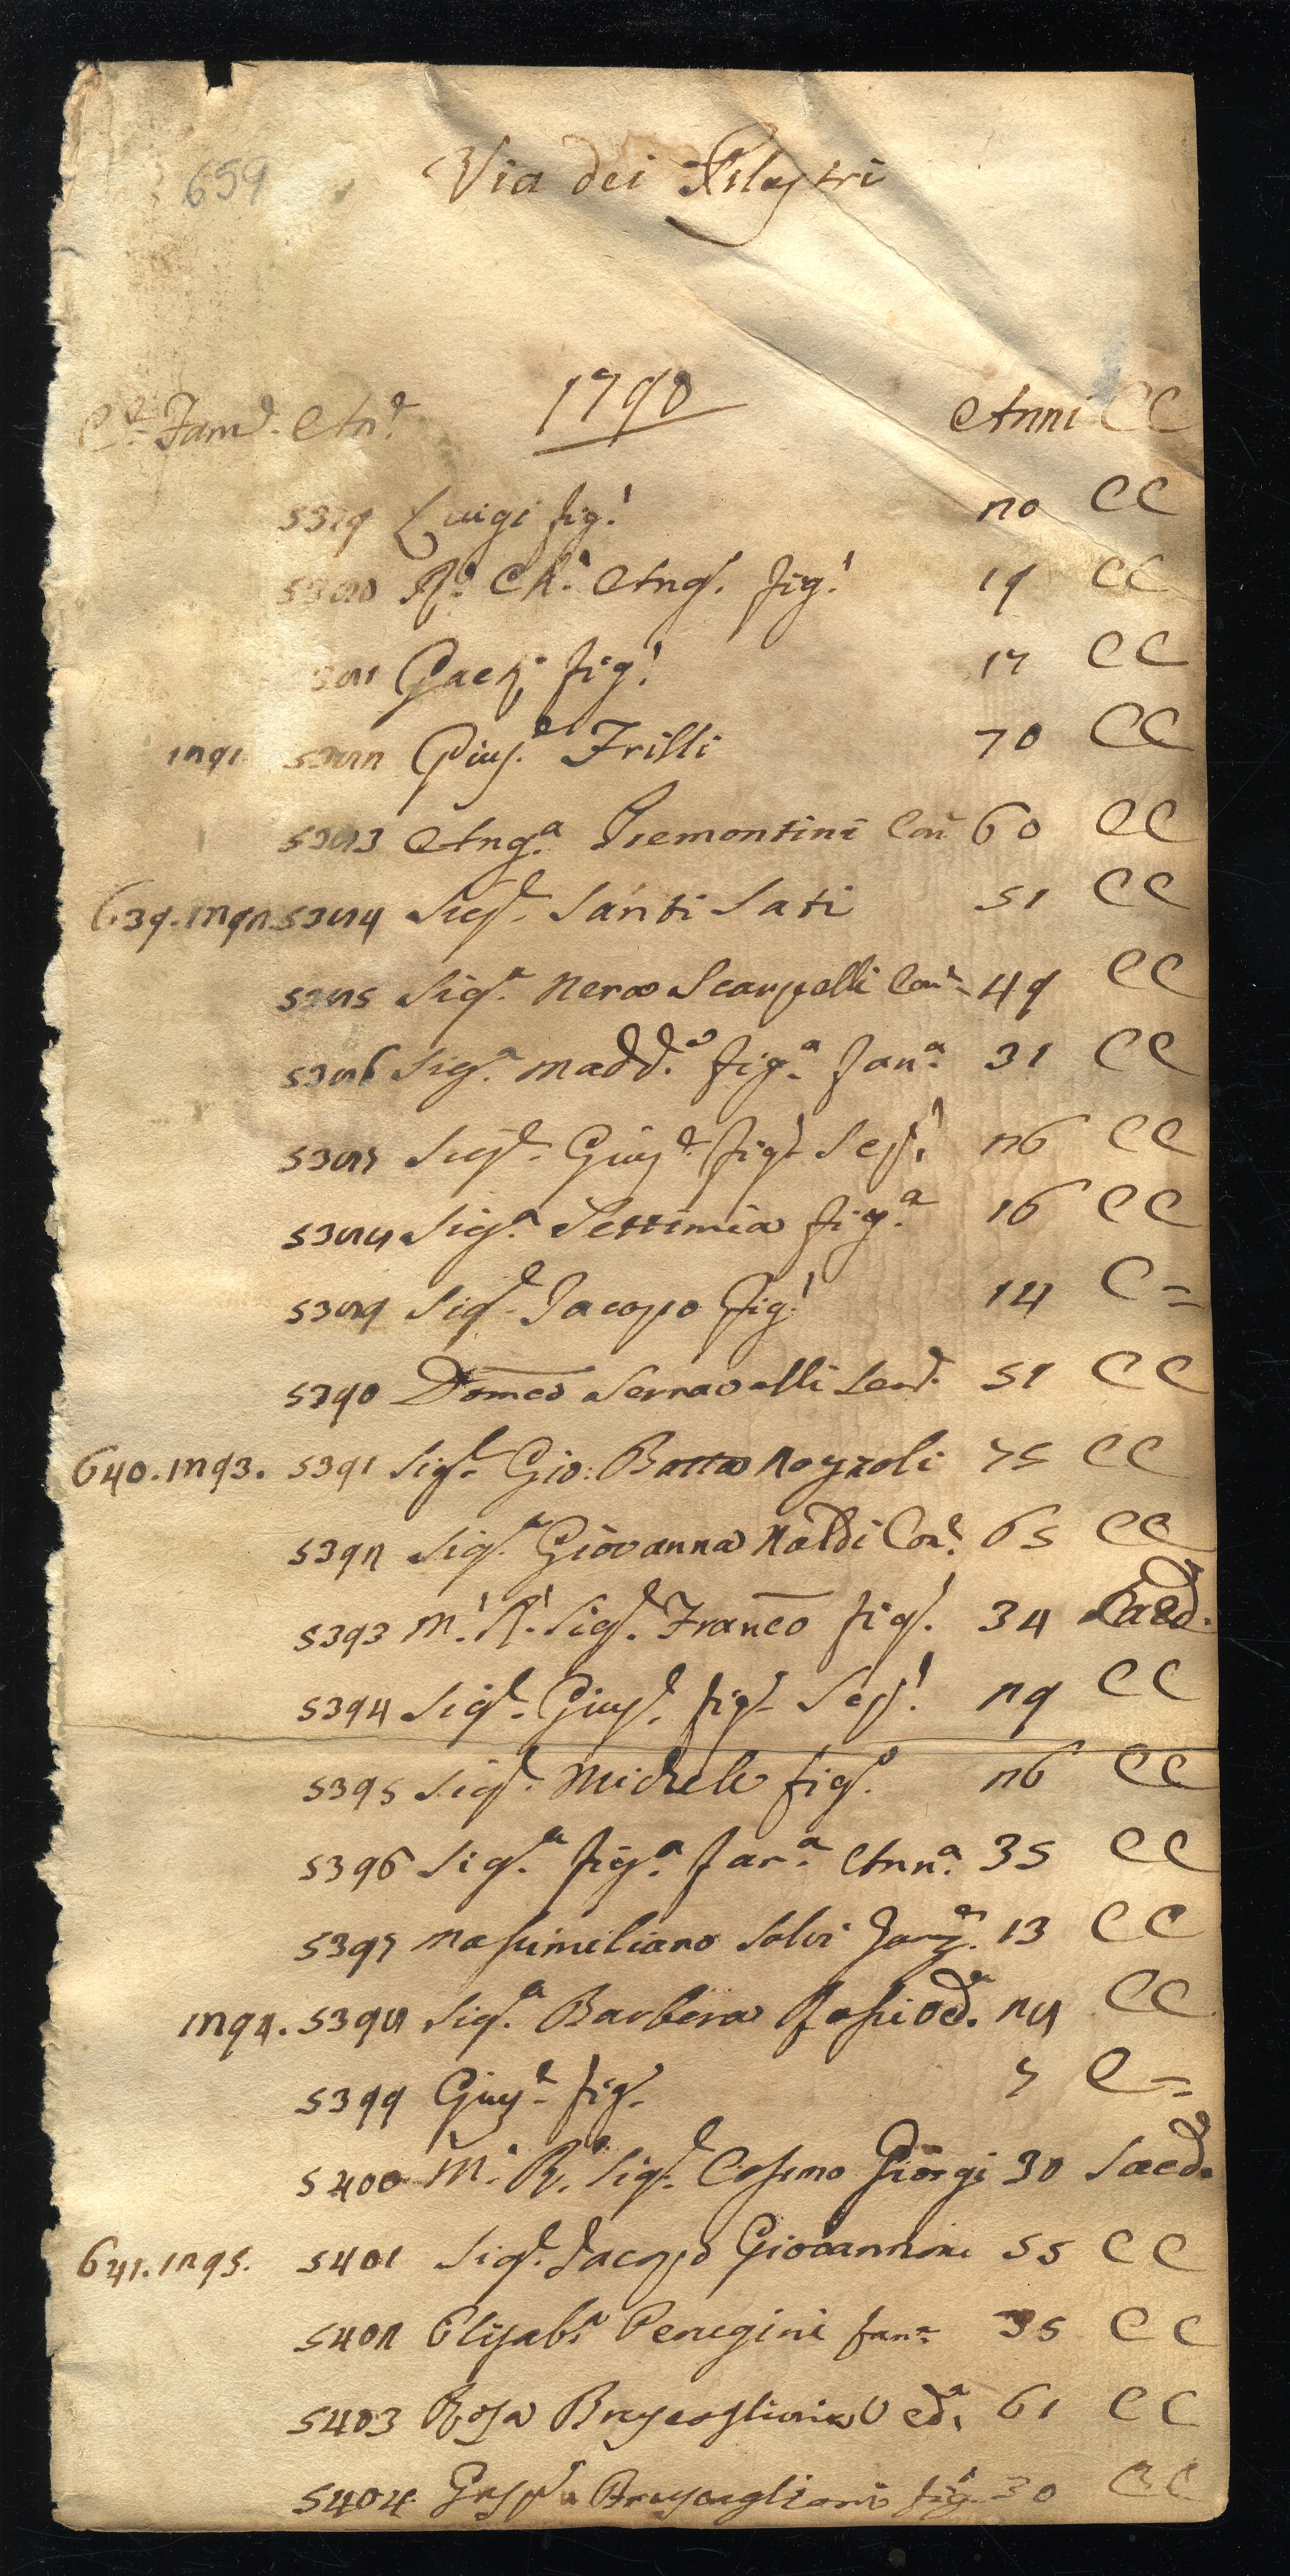 659
Via dei Pilastri
1790
Cᵉ Famᵉ. Anᵉ. Anni CC
5379 Luigi figˡ. 20 CC
5380 Rᵈ. Ch. Angˡ. figˡ. 19 CC
5381 Gaetᵒ figˡ. 17 CC
1291 5382 Giusᵉ. Frilli 70 CC
5383 Angᵃ. Piemontini Con 60 CC
639. 1292. 5384 Sigʳᵉ. Santi Sati 51 CC
5385 Sigᵃ. Nera Scarpelli Conᵉ. 49 CC
5386 Sigᵃ. Maddᵃ. figᵃ. fanᵃ. 31 CC
5387 Sigʳᵉ. Giusᵉ. figˡ. 26 CC
5388 Sigᵃ. Settimia figᵃ. 16 CC
5389 Sigʳᵉ. Jacopo figˡ. 14 C =
5390 Domᶜᵒ Serravalli Serᵈ. 51 CC
640. 1293. 5391 Sigʳᵉ. Gio: Batta Nozzoli 75 CC
5392 Sigᵃ. Giovanna Naldi Conᵉ. 65 CC
5393 M. R. Sigʳᵉ. Franco figˡ. 34 Sacd.
5394 Sigʳᵉ. Giusᵉ. figˡ. 29 CC
5395 Sigʳᵉ. Michele figˡ. 26 CC
5396 Sigᵃ. figᵃ. fanᵃ. Annᵃ. 35 CC
5397 Massimiliano Salvi 13 CC
1294. 5398 Sigᵃ. Barbera Rossi vedᵃ. 28 CC
5399 Giusᵉ. figˡ. 7 C =
5400 M. R. Sigʳᵉ. Cosimo Giorgi 30 Sacd.
641. 1295. 5401 Sigʳᵉ. Jacopo Giovannini 55 CC
5402 Elisabᵃ. Perugini fanᵃ. 35 CC
5403 Rosa Vedᵃ. 61 CC
5404 figˡ. 30 CC